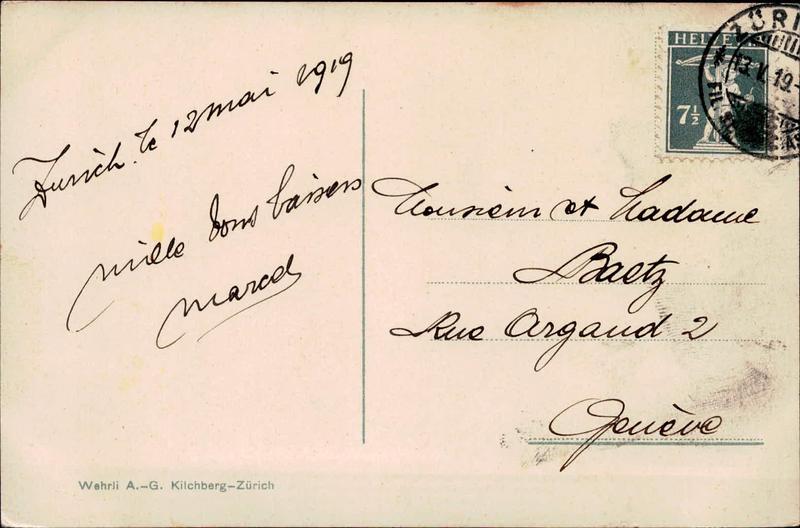 Zurich. le 12 mai 1919
mille bons baisers
Marcel
Monsieur et Madame
Baetz
Rue Argand 2
Genève
HELVETIA
7½
ZÜRI
13.V.19.-
FIL.
Wehrli A.-G. Kilchberg-Zürich